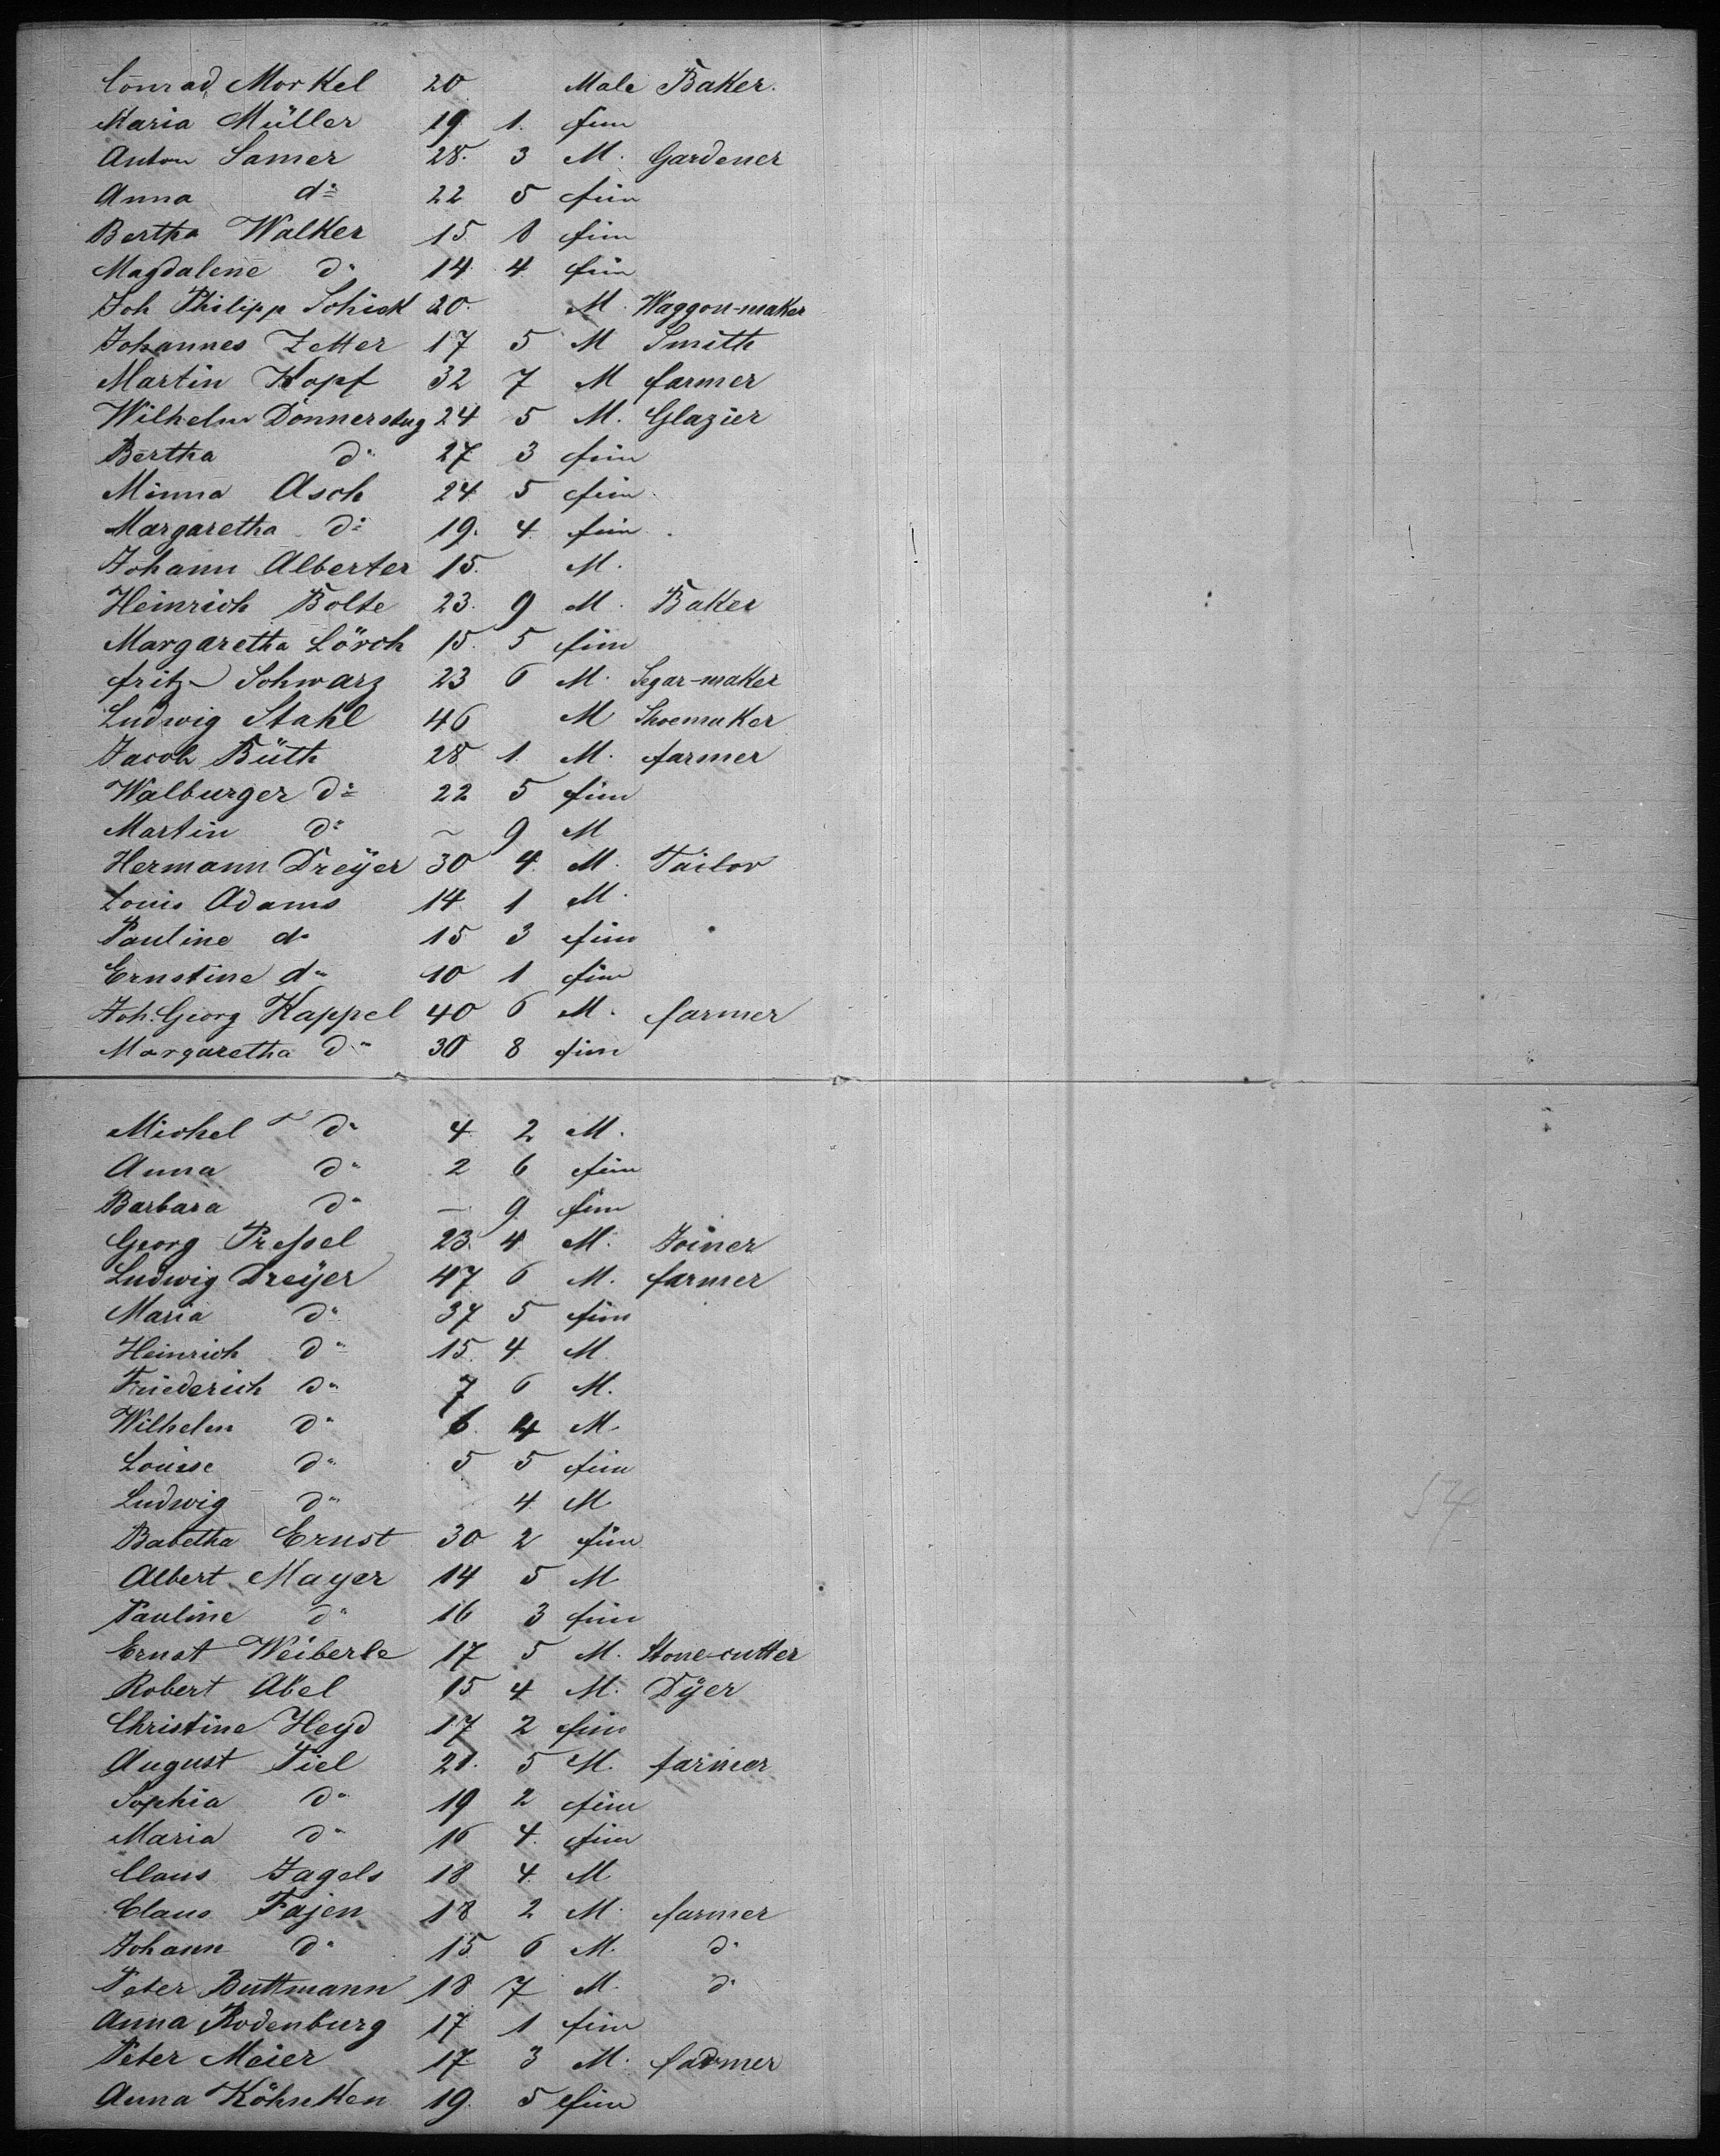 Conrad Morkel 20 Male Baker.
Maria Müller 19 1. fem
Anton Samer 28. 3 M. Gardener
Anna do 22 5 fem
Bertha Walker 15 8 fem
Magdalene do 14 4 fem
Joh Philipp Schick 20. M. Waggon-maker
Johannes Zetter 17 5 M Smith
Martin Kopf 32 7 M farmer
Wilhelm Donnerstug 24 5 M. Glazier
Bertha do 27 3 fem
Minna Asch 24 5 fem
Margaretha do 19. 4. fem
Johann Alberter 15. M.
Heinrich Bolte 23. 9 M. Baker
Margaretha Lörch 15. 5 fem
fritz Schwarz 23 6 M. Segar-maker
Ludwig Stahl 46 M Shoemaker
Jacob Büth 28 1. M. farmer
Walburger do 22 5 fem
Martin do ~ 9 M
Hermann Dreÿer 30 4. M. Tailor
Louis Adams 14 1 M.
Pauline do 15 3 fem
Ernstine do 10 1 fem
Joh. Georg Kappel 40 6 M. farmer
Margaretha do 30 8 fem
Michel do 4. 2 M.
Anna do 2 6 fem
Barbara do — 9 fem
Georg Preßel 23. 4 M. Joiner
Ludwig Dreÿer 47 6 M. farmer
Maria do 37 5 fem
Heinrich do 15. 4. M.
Friederich do 7 6 M.
Wilhelm do 6. 4 M.
Louise do 5 5 fem
Ludwig do 4. M
Babetha Ernst 30 2 fem
Albert Mayer 14 5 M
Pauline do 16 3 fem
Ernst Weiberle 17 5 M. Stone-cutter
Robert Abel 15 4 M. Dÿer
Christine Heyd 17 2 fem
August Tiel 21. 5 M. farmer
Sophia do 19 2 fem
Maria do 16 4. fem
Claus Jagels 18 4. M
Claus Fajen 18 2 M. farmer
Johann do 15 6 M. do
Peter Buttmann 18 7 M. do
Anna Rodenburg 17 1 fem
Peter Meier 17 3 M. farmer
Anna Köhnken 19. 5 fem
54